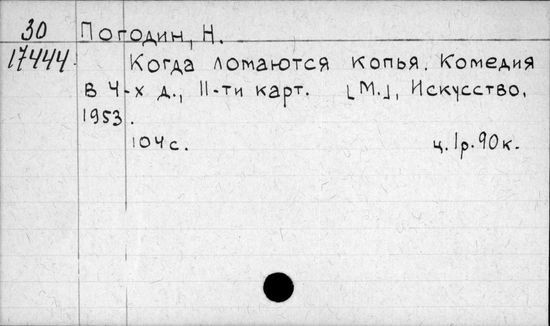 30 Погодин, Н.
17444 Когда ломаются копья. Комедия
в 4-х д., 11-ти карт. [М.], Искусство,
1953.
104 с. ц. 1р. 90к.